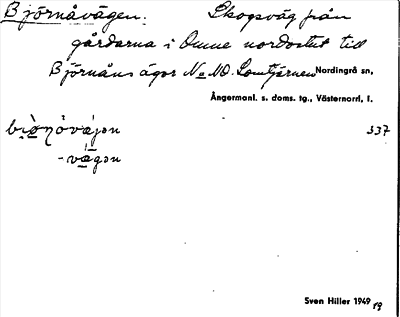 Björnåvägen. Skogsväg från
gårdarna i Omne nordostut till
Björnåns ägor No NO. Lomtjärnen Nordingrå sn,
Ångermanl. s. doms. tg., Västernorrl. l.
337
-vägən
Sven Hiller 1949
19